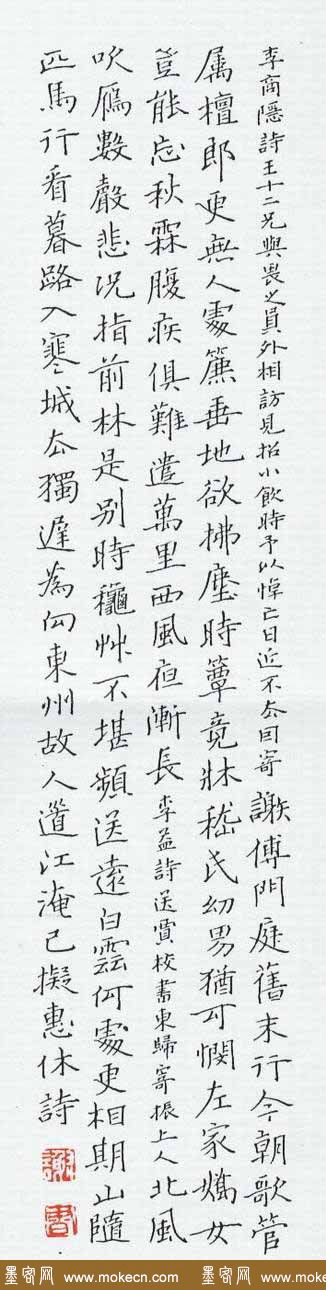 李商隱詩王十二兄與畏之員外相訪見招小飲時予以悼亡日近不去囙寄謝傅門庭舊末行今朝歌管
属檀郎更無人處簾垂地欲拂塵時簟竟牀嵇氏幼男猶可憫左家嬌女
豈能忘秋霖腹疾俱難遣萬里西風夜漸長李益詩送賈校書東歸寄振上人北風
吹鴈數聲悲况指前林是别時龝艸不堪頻送遠白雲何處更相期山隨
匹馬行看暮路入寒城去獨遲為向東州故人道江淹已擬惠休詩
墨客网 www.mokecn.com 墨客网 www.mokecn.com